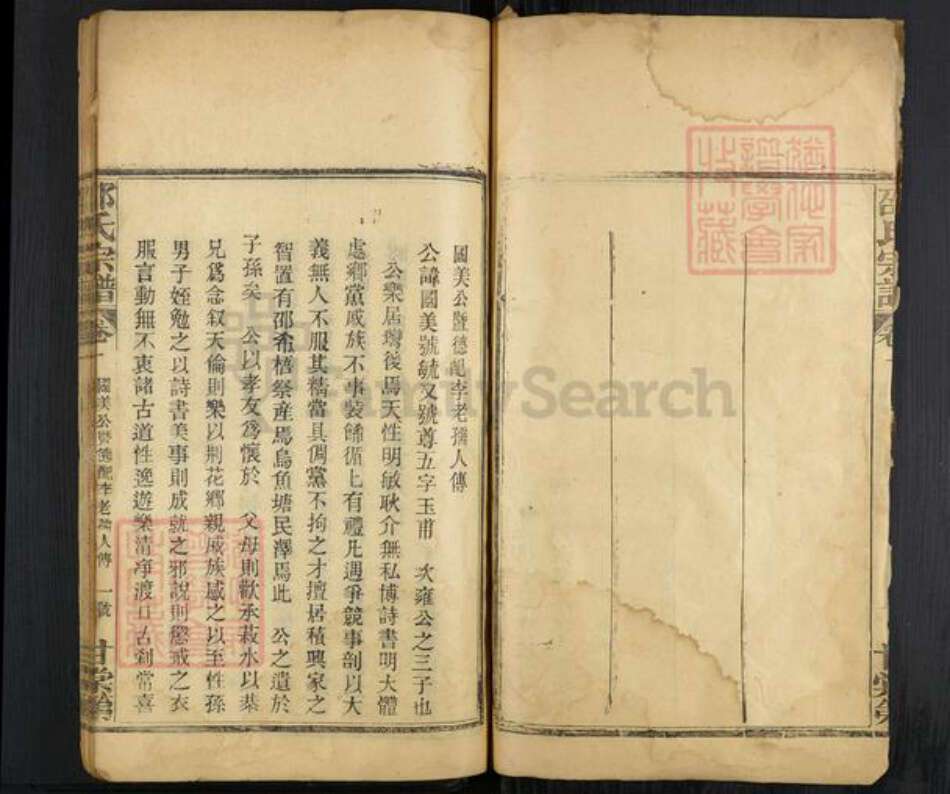 邵氏宗譜
卷一
甘棠第
國美公暨德配李老孺人傳
公諱國美號毓文號尊五字玉甫 次雍公之三子也
公樂居灣後焉天性明敏耿介無私博詩書明大體
處鄉黨戚族不事裝餙循上有禮凡遇爭競事剖以大
義無人不服其穡當具倜黨不拘之才擅居積興家之
智置有邵希梧祭產焉烏魚塘民澤焉此 公之遺於
子孫矣 公以孝友爲懷於 父母則歡承菽水以恭
兄爲念叙天倫則樂以荆花鄉親戚族感之以至性孫
男子姪勉之以詩書美事則成就之邪說則懲戒之衣
服言動無不衷諸古道性逸遊樂清净渡口古刹常喜
邵氏宗譜
卷一
國美公暨德配李老孺人傳
一號
甘棠第
FamilySearch